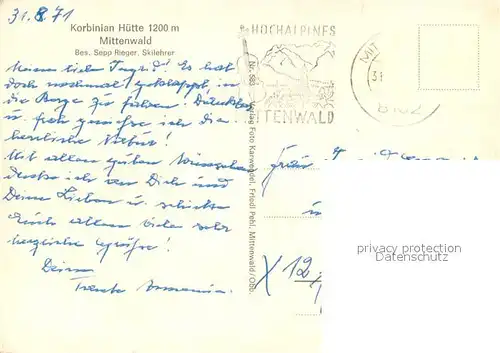 31.8.71
Korbinian Hütte 1200 m
Mittenwald
Bes. Sepp Rieger, Skilehrer
Meine liebe Ingrid! Es hat
doch nochmal geklappt, in
die Berge zu fahren. Dankbar
u. froh genieße ich die
herrliche Natur!
Mit allen guten Wünschen
denke ich an Dich und
Deine Lieben u. schicke
Euch allen viele sehr
herzliche Grüße!
Deine
Tante
HOCHALPINES
MITTENWALD
Verlag Foto Karwendel, Friedl Pehl, Mittenwald/Obb.
MIT
31
Frau
12
privacy protection
Datenschutz